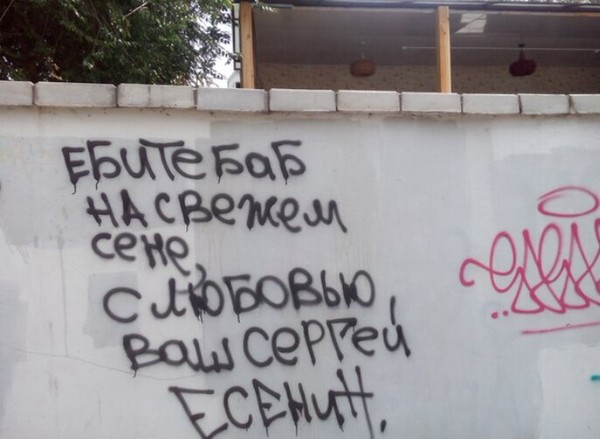 ЕБИТЕ БАБ
НА СВЕЖЕМ
СЕНЕ,
С ЛЮБОВЬЮ,
ВАШ СЕРГЕЙ
ЕСЕНИН.